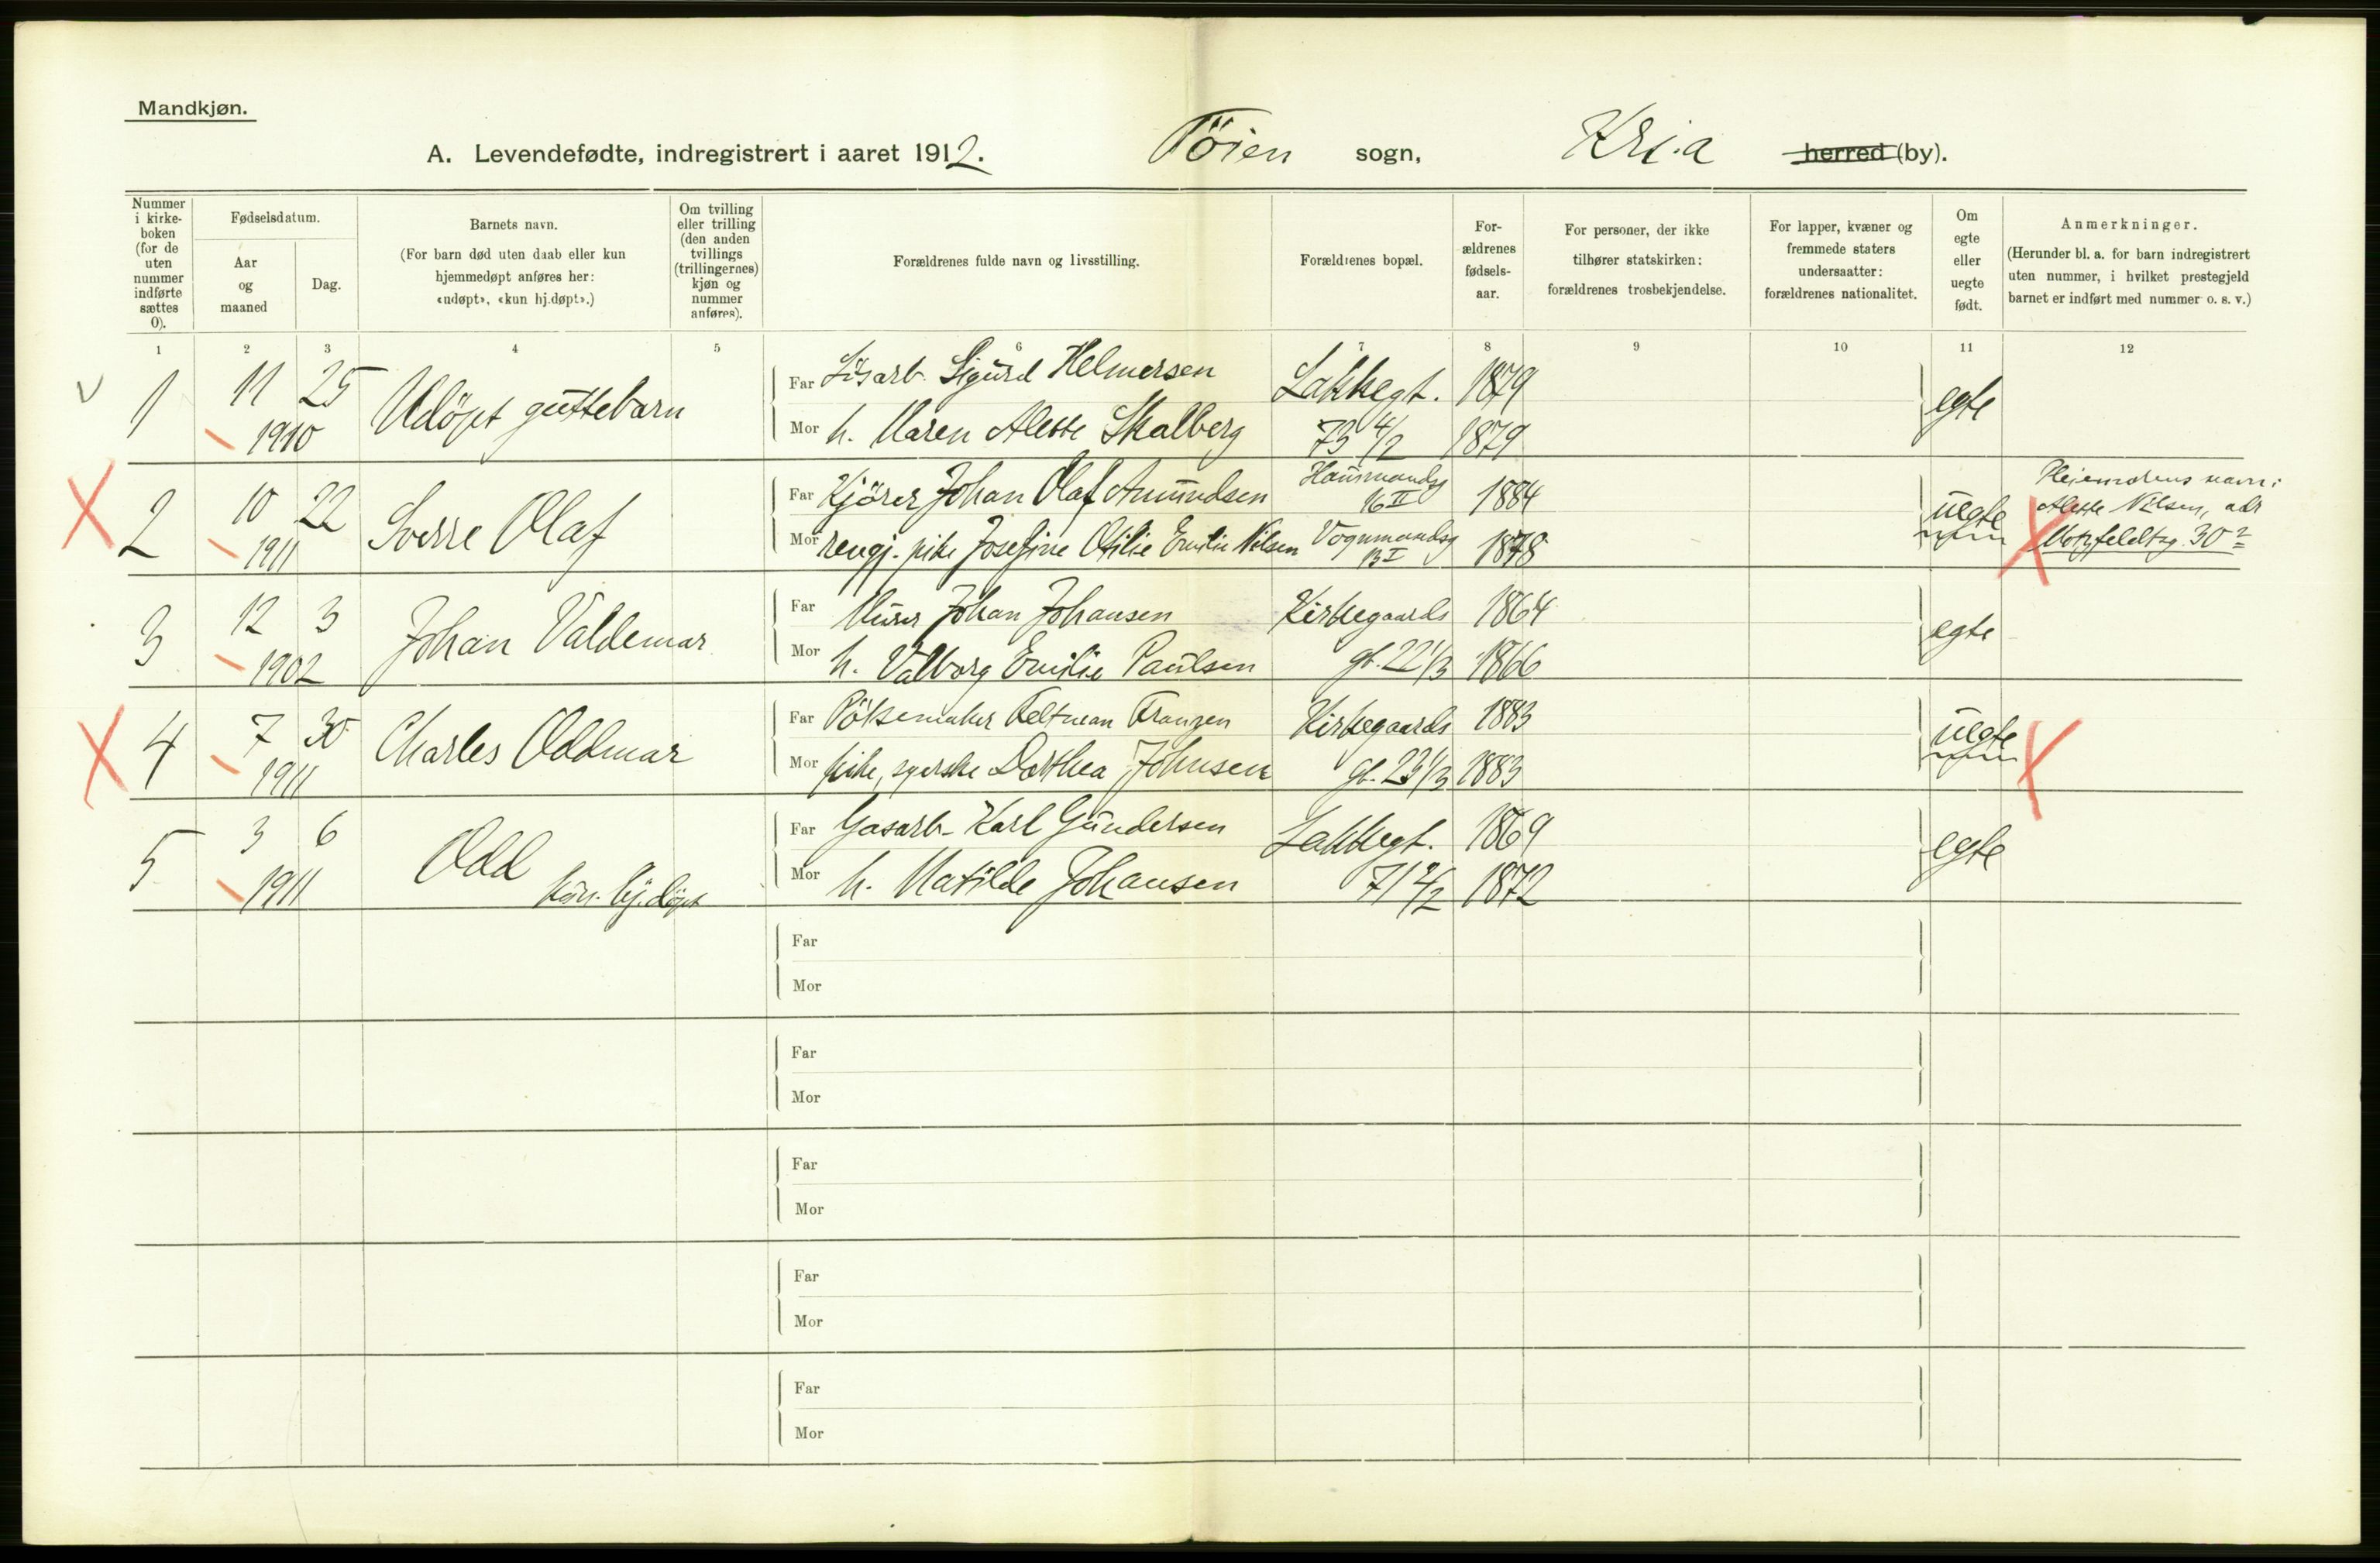 Mandkjøn.
A. Levendefødte, indregistrert i aaret 1912.
Töien sogn, Kr.i.a herred (by).
Nummer
i kirke-
boken
(for de
uten
nummer
indførte
sættes
0).
Fødselsdatum.
Aar
og
maaned
Dag.
Barnets navn.
(For barn død uten daab eller kun
hjemmedøpt anføres her:
«udøpt», «kun hj.døpt».)
Om tvilling
eller trilling
(den anden
tvillings
(trillingernes)
kjøn og
nummer
anføres).
Forældrenes fulde navn og livsstilling.
Forældrenes bopæl.
For-
ældrenes
fødsels-
aar.
For personer, der ikke
tilhører statskirken:
forældrenes trosbekjendelse.
For lapper, kvæner og
fremmede staters
undersaatter:
forældrenes nationalitet.
Om
egte
eller
uegte
født.
Anmerkninger.
(Herunder bl. a. for barn indregistrert
uten nummer, i hvilket prestegjeld
barnet er indført med nummer o. s. v.)
1 2 3 4 5 6 7 8 9 10 11 12
1 11 25 Udöpt guttebarn Far Lösarb. Sigurd Helmersen Lakkegt. 1879 egte
1910 Mor h. Maren Alette Skalberg 73 4/2 1879
2 10 22 Sverre Olaf Far Kjörer Johan Olaf Amundsen Hausmandsg 16 II 1884 uegte
1911 Mor rengj. pike Josefine Otilie Emilie Nilsen Vognmandsg 13 I 1878
Pleiemorens navn:
Alette Nilsen, adr
Motzfeldtsg. 30 2
3 12 3 Johan Valdemar Far Murer Johan Johansen Kirkegaards 1864 egte
1902 Mor h. Valborg Emilie Paulsen gt. 22 1/3 1866
4 7 30 Charles Oddmar Far Pölsemaker Feltman Franzen Kirkegaards 1883 uegte
1911 Mor pike, syerske Dorthea Johnsen gt. 23 1/3 1883
5 3 6 Odd Far Gasarb. Karl Gundersen Lakkegt. 1869 egte
1911 kun hj.döpt Mor h. Matilde Johansen 71 4/2 1872
Far
Mor
Far
Mor
Far
Mor
Far
Mor
Far
Mor